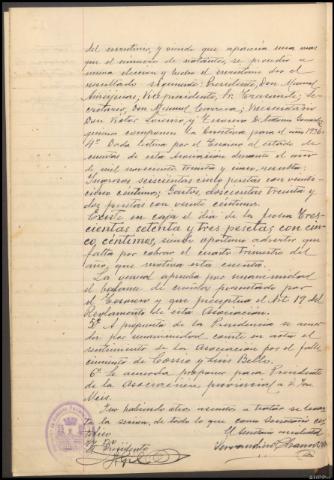 del escrutinio, y viendo que aparecía una mas
que el numero de votantes, se procedio a
nueva eleccion y hecho el escrutinio dio el
resultado siguiente: Presidente, Don Manuel
Vicepresidente, Sr.
cretario, Don Manuel Correira; Vicesecretario
Don Victor Lorenzo, y Tesorero D.
quienes componen la Directiva para el año 1936.
4º Dada lectura por el Tesorero al estado de
cuentas de esta Asociacion durante el año
de mil novecientos treinta y cinco, resulta:
Ingresos seiscientas cinco pesetas con veinti-
cinco centimos; Gastos, doscientas treinta y
dos pesetas con veinte centimos.
Existe en caja el dia de la fecha Tres-
cientas setenta y tres pesetas con cin-
co centimos, siendo oportuno advertir que
falta por cobrar el cuarto trimestre del
año, que motiva esta cuenta.
La general aprueba por unanimidad
el balance de cuentas presentado por
el Tesorero y que preceptua el Art. 19 del
Reglamento de esta Asociacion.
5º A propuesta de la Presidencia se acuer-
da por unanimidad conste en acta el
sentimiento de la Asociacion por el falle-
cimiento de Cossio y Luis Bello.
6º Se acuerda proponer para Presidente
de la Asociación provincial a D. Jose
Y no habiendo otros asuntos a tratar se levan-
ta la sesion, de todo lo que como Secretario cer-
tifico.
Vº Bº
El Presidente
El Secretario